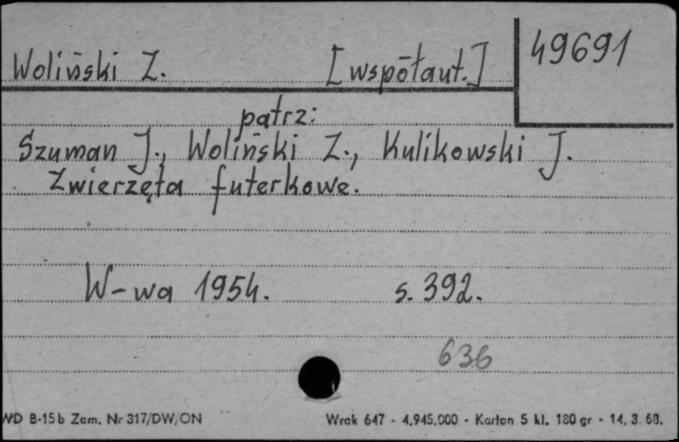 49691
Woliński Z. [współaut.]
patrz:
Szuman J., Woliński Z., Kulikowski J.
Zwierzęta futerkowe.
W-wa 1954. s. 392.
636
WD B-15b Zam. Nr 317/DW/ON Wrak 647 - 4.945.000 - Karton 5 kl. 180 gr - 14. 3. 60.